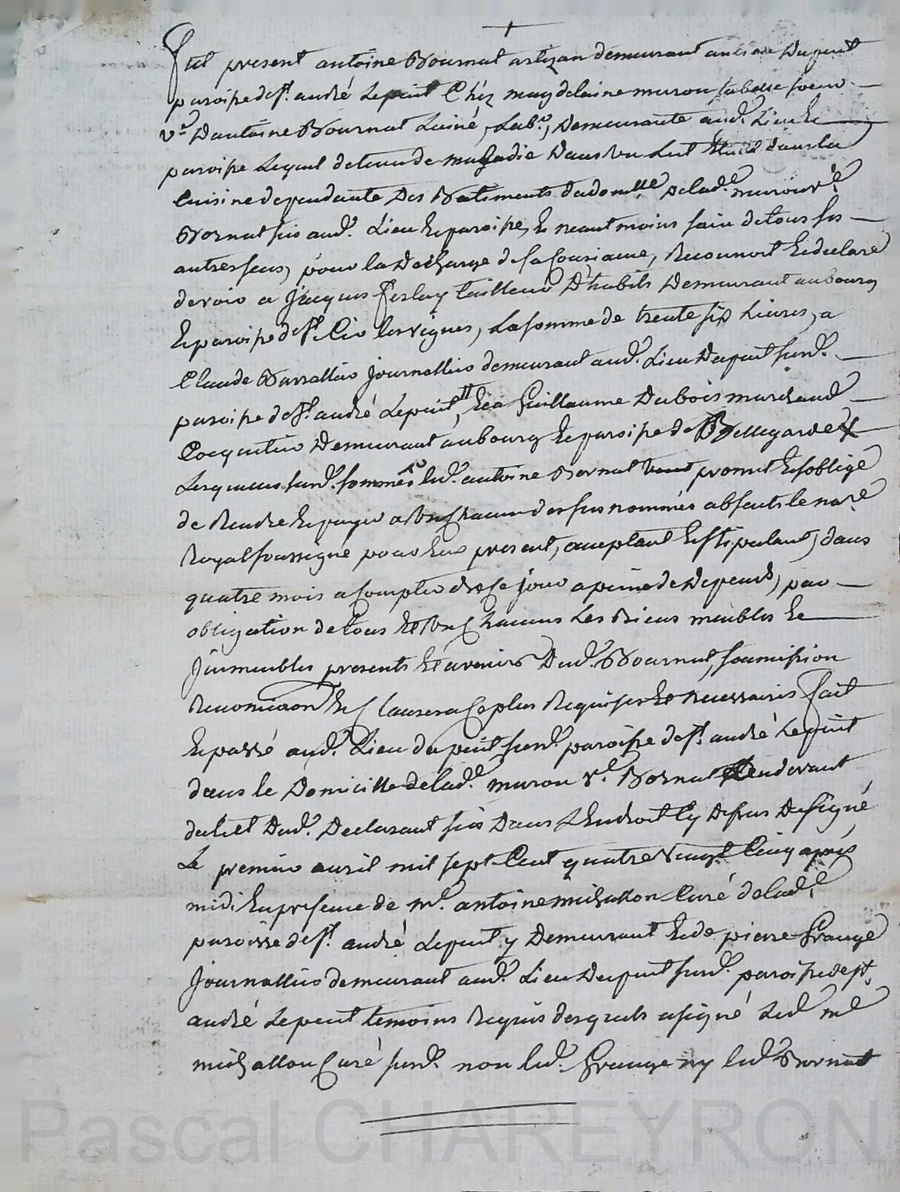 Fut present antoine Bournat artizan demeurant au lieu Dupuit
paroipe de st. andré Lepuit Chez magdelaine murou sa belle soeur
ve. D'antoine Bournat Lainé, Labr., Demeurante aud. Lieu Et
paroipe Lequel detenu de maladie Dans un Lit Etant dans la
Cuisine dependante Des Batiments du domille de lad. murou ve.
Bornat sis aud. Lieu Et paroipe, Et neant moins sain de tous ses
autres sens, pour la Decharge de sa Consiance, Reconnoit Et declare
devoir a Jacques Ferlay tailleur D'habits Demeurant au bourg
Et paroipe de st. Cir les vignes, La somme de trente six Livres, a
Claude Barrallier Journallier demeurant aud. Lieu Dupuit surd.
paroipe de st. andré Lepuit, Et a Guillaume Dubois marchand
Coquetier Demeurant au bourg Et paroipe de Bellegarde
Lesquelles surd. sommes led. antoine Bornat promet Et s'oblige
de Rendre Et payer a un Chacun des sus nommés absents le nore.
Royal soussigné pour Eux present, acceptant Et stipulant, dans
quatre mois a Compter de Ce jour a peine de Depens, par
obligation de tous Et un Chacuns Les Biens meubles Et
Jmmeubles presents Et avenir Dud. Bournat, soumipion
Renonciation Et Clauses a Ce plus Requises Et necessaires fait
Et passé aud. Lieu du puit surd. paroipe de st. andré Lepuit
dans le Domicille de lad. murou ve. Bornat Et au devant
du lict Dud. Declarant sis Dans L'Endroit Cy Depus Designé
Le premier avril mil sept Cent quatre vingt Cinq après
midi En presence de mr. antoine michallon Curé de lad.
paroisse de st. andré Lepuit y Demeurant Et de pierre Grange
Journallier demeurant aud. Lieu Dupuit surd. paroipe de st.
andré Lepuit temoins Requis desquels a signé Led. mr.
michallon Curé surd. non led. Grange ny led. Bornat
Pascal CHAREYRON